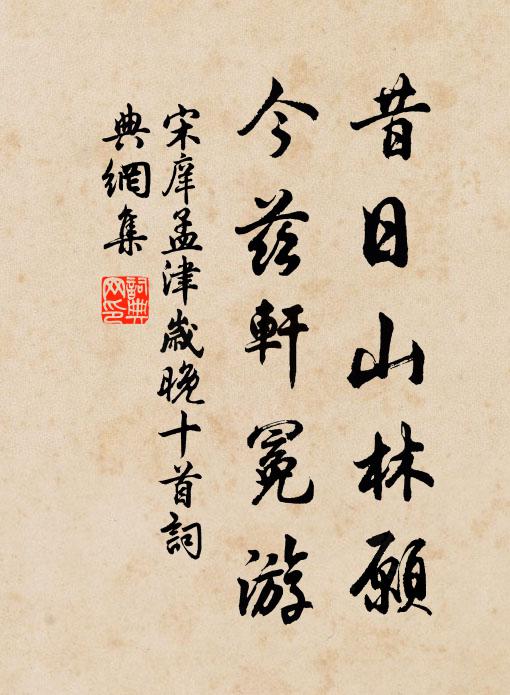 昔日山林願
今茲軒冕游
宋庠孟津歲晚十首詞
典網集
詞典
网印